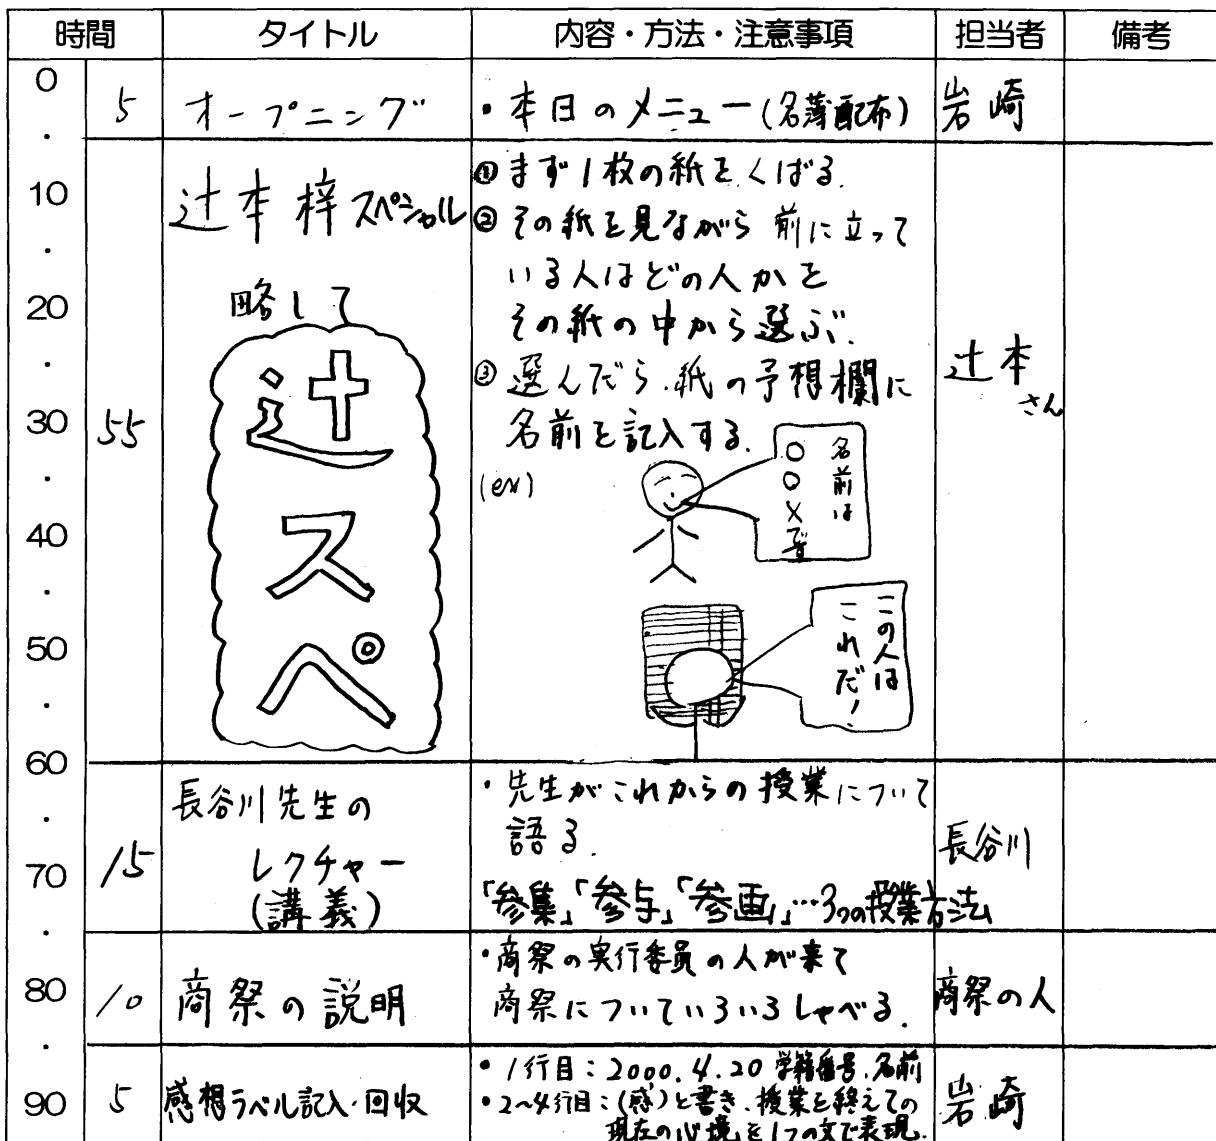 時間 タイトル 内容・方法・注意事項 担当者 備考
0
・
10
・
20
・
30
・
40
・
50
・
60
・
70
・
80
・
90
5 オープニング ・本日のメニュー(名簿配布) 岩崎
55
辻本梓スペシャル
略して
辻スペ
①まず1枚の紙をくばる.
②その紙を見ながら前に立って
いる人はどの人かを
その紙の中から選ぶ.
③選んだら.紙の予想欄に
名前を記入する.
(ex)
名前は
○○×です
この人は
これだ!
辻本
さん
15
長谷川先生の
レクチャー
(講義)
・先生がこれからの授業について
語る.
「参集」「参与」「参画」…3つの授業方法
長谷川
10 商祭の説明
・商祭の実行委員の人が来て
商祭についていろいろしゃべる.
商祭の人
5 感想ラベル記入・回収
・1行目:2000.4.20 学籍番号.名前
・2~4行目:(感)と書き、授業を終えての
現在の心境を1つの文で表現.
岩崎